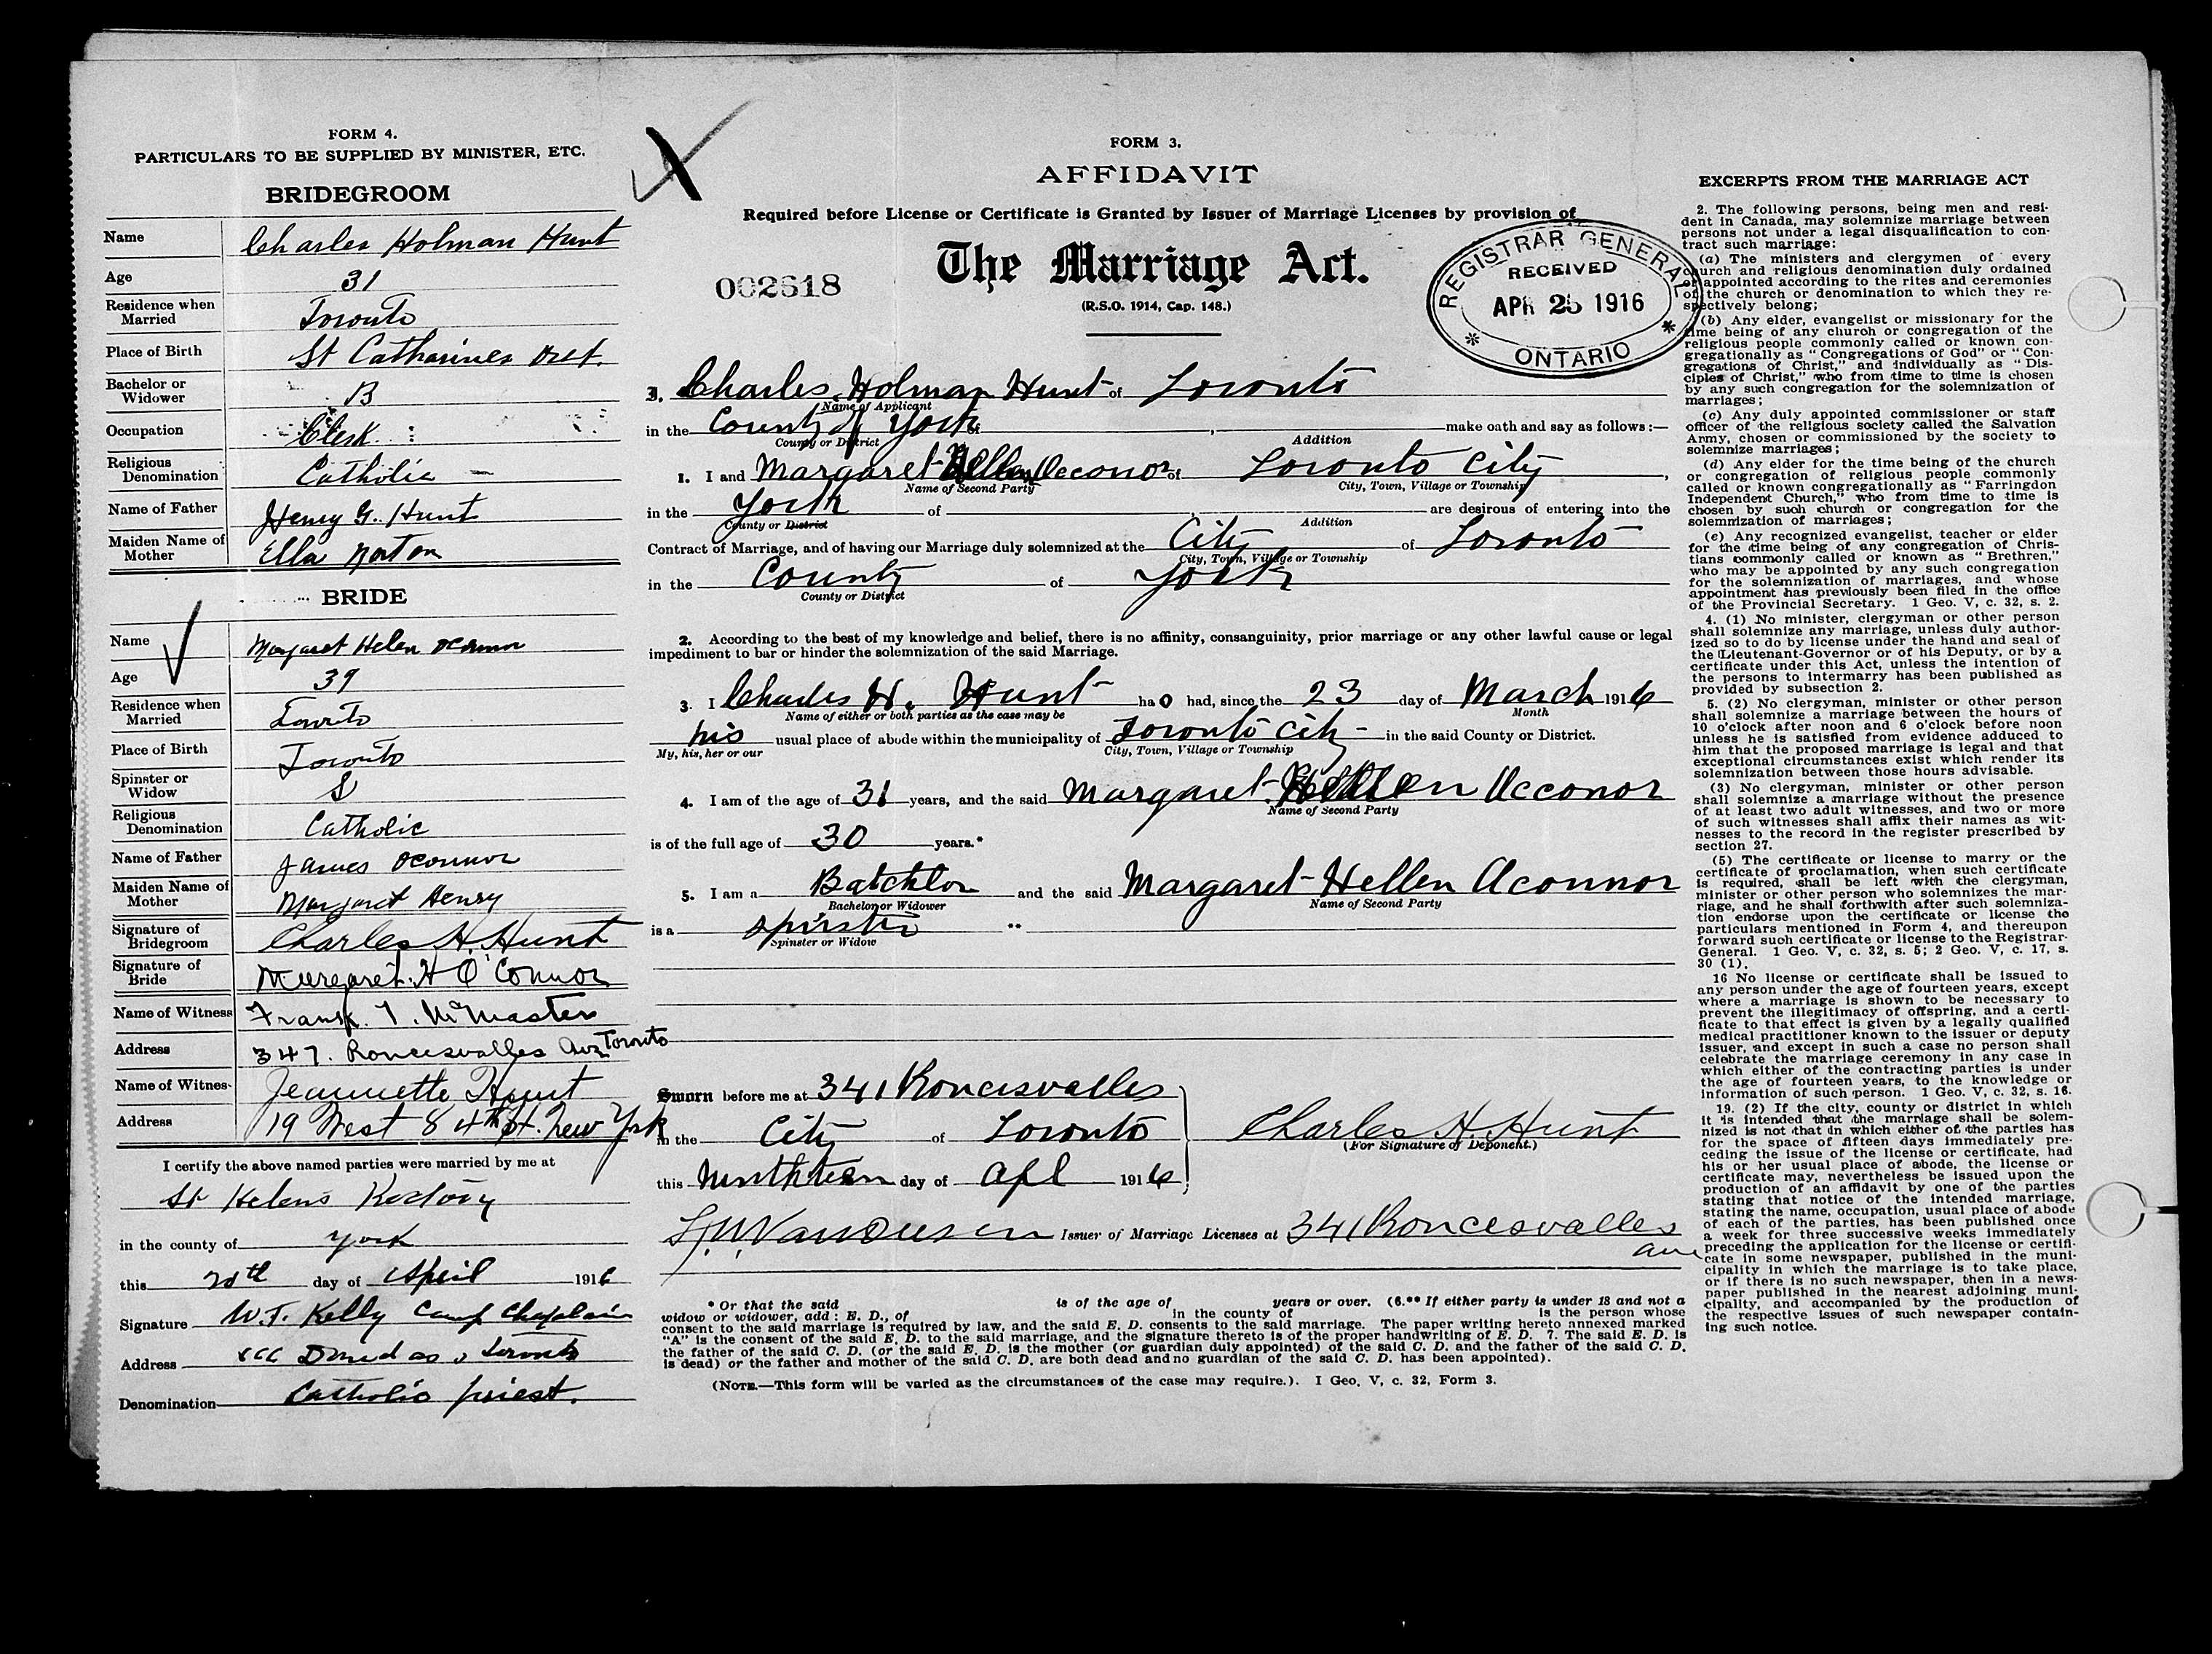 FORM 4.
PARTICULARS TO BE SUPPLIED BY MINISTER, ETC.
BRIDEGROOM
Name Charles Holman Hunt
Age 31
Residence when Married Toronto
Place of Birth St Catharines Ont.
Bachelor or Widower B
Occupation Clerk
Religious Denomination Catholic
Name of Father Henry G. Hunt
Maiden Name of Mother Ella Norton
BRIDE
Name Margaret Helen OConnor
Age 39
Residence when Married Toronto
Place of Birth Toronto
Spinster or Widow S
Religious Denomination Catholic
Name of Father James OConnor
Maiden Name of Mother Margaret Henry
Signature of Bridegroom Charles H. Hunt
Signature of Bride Margaret. H O'Connor
Name of Witness Frank. J. McMaster
Address 347. Roncesvalles Ave Toronto
Name of Witness Jeannette Hunt
Address 19 West 84th St. New York
I certify the above named parties were married by me at
St Helens Rectory
in the county of York
this 20th day of April 1916
Signature W. T. Kelly Camp Chaplain
Address Dundas Toronto
Denomination Catholic priest.
FORM 3.
AFFIDAVIT
Required before License or Certificate is Granted by Issuer of Marriage Licenses by provision of
The Marriage Act.
(R.S.O. 1914, Cap. 148.)
002618
REGISTRAR GENERAL
RECEIVED
APR 25 1916
* ONTARIO *
I. Charles Holman Hunt of Toronto
Name of Applicant
in the County of York make oath and say as follows:—
County or District Addition
1. I and Margaret Hellen Oconor of Toronto City,
Name of Second Party City, Town, Village or Township
in the York of are desirous of entering into the
County or District Addition
Contract of Marriage, and of having our Marriage duly solemnized at the City of Toronto
City, Town, Village or Township
in the County of York
County or District
2. According to the best of my knowledge and belief, there is no affinity, consanguinity, prior marriage or any other lawful cause or legal
impediment to bar or hinder the solemnization of the said Marriage.
3. I Charles H. Hunt has had, since the 23 day of March 1916
Name of either or both parties as the case may be Month
his usual place of abode within the municipality of Toronto City in the said County or District.
My, his, her or our City, Town, Village or Township
4. I am of the age of 31 years, and the said Margaret Hellen Oconor
Name of Second Party
is of the full age of 30 years.*
5. I am a Batchlor and the said Margaret Hellen Oconnor
Bachelor or Widower Name of Second Party
is a spinster
Spinster or Widow
Sworn before me at 341 Roncesvalles
in the City of Toronto
this Ninthteen day of Apl 1916
Charles H. Hunt
(For Signature of Deponent.)
Issuer of Marriage Licenses at 341 Roncesvalles
ave
* Or that the said is of the age of years or over. (6.** If either party is under 18 and not a
widow or widower, add: E. D., of in the county of is the person whose
consent to the said marriage is required by law, and the said E. D. consents to the said marriage. The paper writing hereto annexed marked
"A" is the consent of the said E. D. to the said marriage, and the signature thereto is of the proper handwriting of E. D. 7. The said E. D. is
the father of the said C. D. (or the said E. D. is the mother (or guardian duly appointed) of the said C. D. and the father of the said C. D.
is dead) or the father and mother of the said C. D. are both dead and no guardian of the said C. D. has been appointed).
(NOTE.—This form will be varied as the circumstances of the case may require.). I Geo. V, c. 32, Form 3.
EXCERPTS FROM THE MARRIAGE ACT
2. The following persons, being men and resi-
dent in Canada, may solemnize marriage between
persons not under a legal disqualification to con-
tract such marriage:
(a) The ministers and clergymen of every
church and religious denomination duly ordained
or appointed according to the rites and ceremonies
of the church or denomination to which they re-
spectively belong;
(b) Any elder, evangelist or missionary for the
time being of any church or congregation of the
religious people commonly called or known con-
gregationally as "Congregations of God" or "Con-
gregations of Christ," and individually as "Dis-
ciples of Christ," who from time to time is chosen
by any such congregation for the solemnization of
marriages;
(c) Any duly appointed commissioner or staff
officer of the religious society called the Salvation
Army, chosen or commissioned by the society to
solemnize marriages;
(d) Any elder for the time being of the church
or congregation of religious people commonly
called or known congregationally as "Farringdon
Independent Church," who from time to time is
chosen by such church or congregation for the
solemnization of marriages;
(e) Any recognized evangelist, teacher or elder
for the time being of any congregation of Chris-
tians commonly called or known as "Brethren,"
who may be appointed by any such congregation
for the solemnization of marriages, and whose
appointment has previously been filed in the office
of the Provincial Secretary. 1 Geo. V, c. 32, s. 2.
4. (1) No minister, clergyman or other person
shall solemnize any marriage, unless duly author-
ized so to do by license under the hand and seal of
the Lieutenant-Governor or of his Deputy, or by a
certificate under this Act, unless the intention of
the persons to intermarry has been published as
provided by subsection 2.
5. (2) No clergyman, minister or other person
shall solemnize a marriage between the hours of
10 o'clock after noon and 6 o'clock before noon
unless he is satisfied from evidence adduced to
him that the proposed marriage is legal and that
exceptional circumstances exist which render its
solemnization between those hours advisable.
(3) No clergyman, minister or other person
shall solemnize a marriage without the presence
of at least two adult witnesses, and two or more
of such witnesses shall affix their names as wit-
nesses to the record in the register prescribed by
section 27.
(5) The certificate or license to marry or the
certificate of proclamation, when such certificate
is required, shall be left with the clergyman,
minister or other person who solemnizes the mar-
riage, and he shall forthwith after such solemniza-
tion endorse upon the certificate or license the
particulars mentioned in Form 4, and thereupon
forward such certificate or license to the Registrar-
General. 1 Geo. V, c. 32, s. 5; 2 Geo. V, c. 17, s.
30 (1).
16 No license or certificate shall be issued to
any person under the age of fourteen years, except
where a marriage is shown to be necessary to
prevent the illegitimacy of offspring, and a certi-
ficate to that effect is given by a legally qualified
medical practitioner known to the issuer or deputy
issuer, and except in such a case no person shall
celebrate the marriage ceremony in any case in
which either of the contracting parties is under
the age of fourteen years, to the knowledge or
information of such person. 1 Geo. V, c. 32, s. 16.
19. (2) If the city, county or district in which
it is intended that the marriage shall be solem-
nized is not that in which either of the parties has
for the space of fifteen days immediately pre-
ceding the issue of the license or certificate, had
his or her usual place of abode, the license or
certificate may, nevertheless be issued upon the
production of an affidavit by one of the parties
stating that notice of the intended marriage,
stating the name, occupation, usual place of abode
of each of the parties, has been published once
a week for three successive weeks immediately
preceding the application for the license or certifi-
cate in some newspaper, published in the muni-
cipality in which the marriage is to take place,
or if there is no such newspaper, then in a news-
paper published in the nearest adjoining muni-
cipality, and accompanied by the production of
the respective issues of such newspaper contain-
ing such notice.